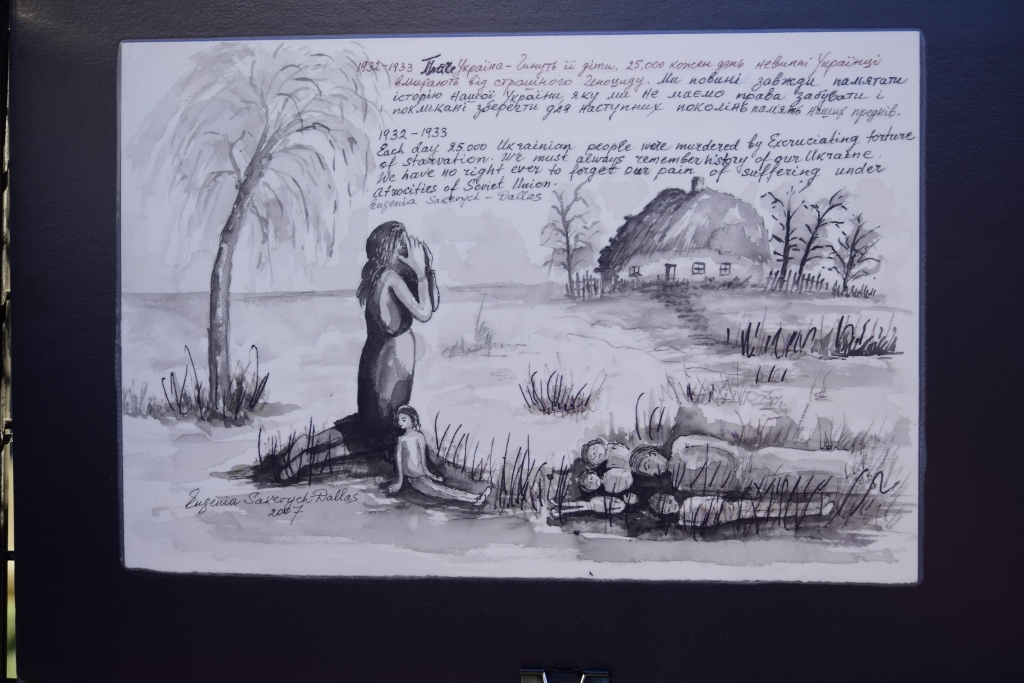 1932-1933 Плаче Україна - Гинуть її діти. 25.000 кожен день невинні Українці
вмирають від страшного Геноциду. Ми повині завжди памятати
історію Нашої України яку ми не маємо права забувати і
покликані зберегти для наступних поколінь память наших предків.
1932-1933
Each day 25.000 Ukrainian people were murdered by Excruciating torture
of starvation. We must always remember history of our Ukraine.
We have no right ever to forget our pain of suffering under
Atrocities of Soviet Union.
Eugenia Sakevych - Dallas
Eugenia Sakevych-Dallas
2007